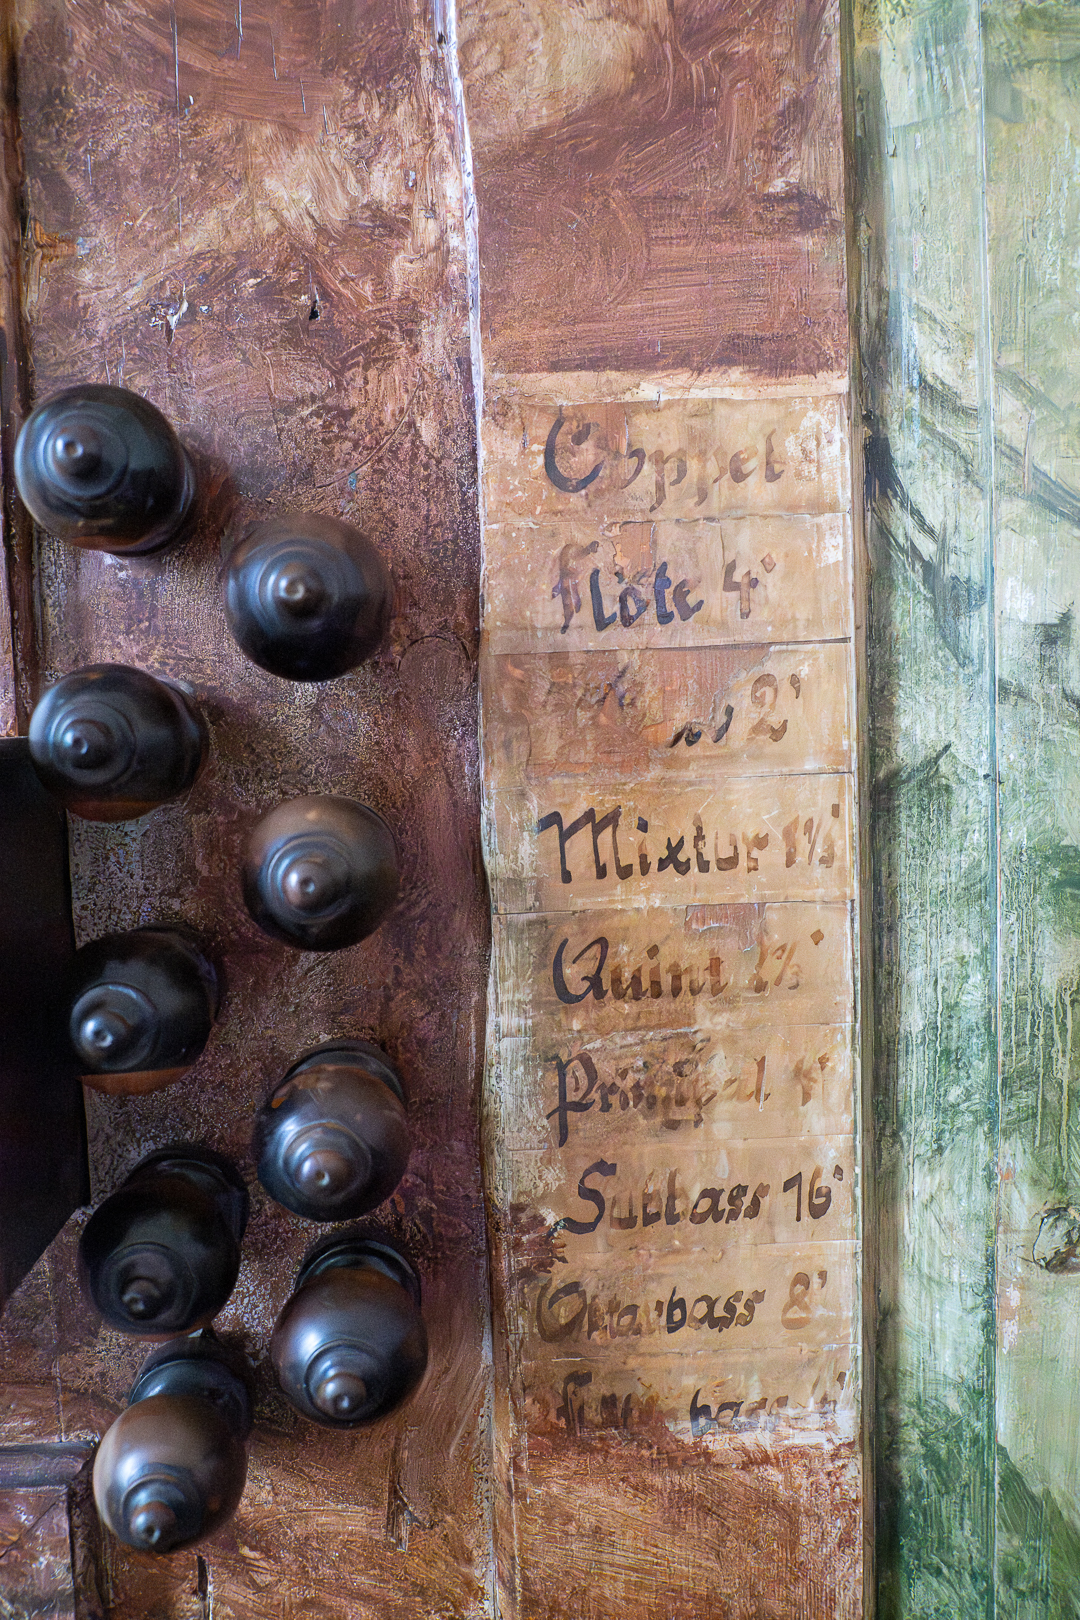 Coppel
Flöte 4'
2'
Mixtur 1⅓
Quint 1⅓'
Principal 4'
Subbass 16'
Oktavbass 8'